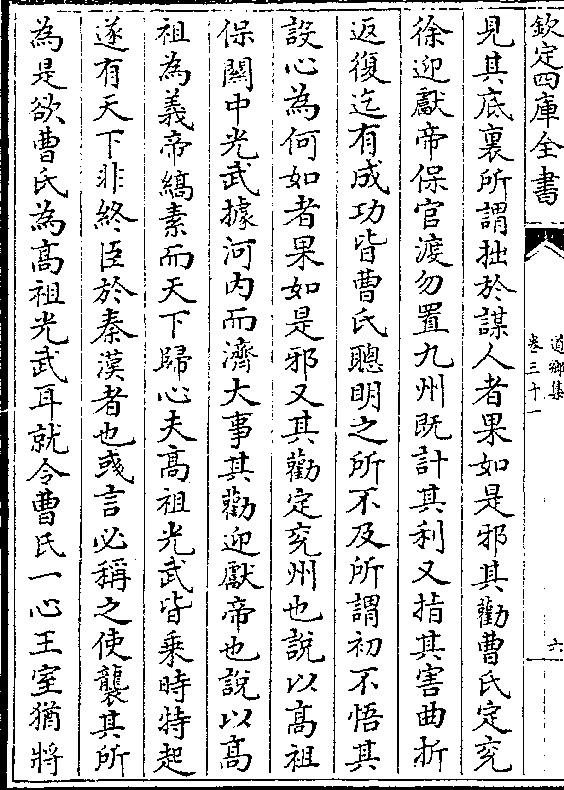 欽定四庫全書
道鄉集
卷三十一
六
見其底裏所謂拙於謀人者果如是邪其勸曹氏定兖
徐迎獻帝保官渡勿置九州既計其利又指其害曲折
返復迄有成功皆曹氏聰明之所不及所謂初不悟其
設心為何如者果如是邪又其勸定兖州也說以高祖
保關中光武據河内而濟大事其勸迎獻帝也說以髙
祖為義帝縞素而天下歸心夫髙祖光武皆乗時特起
遂有天下非終臣於秦漢者也彧言必稱之使襲其所
為是欲曹氏為髙祖光武耳就令曹氏一心王室猶將